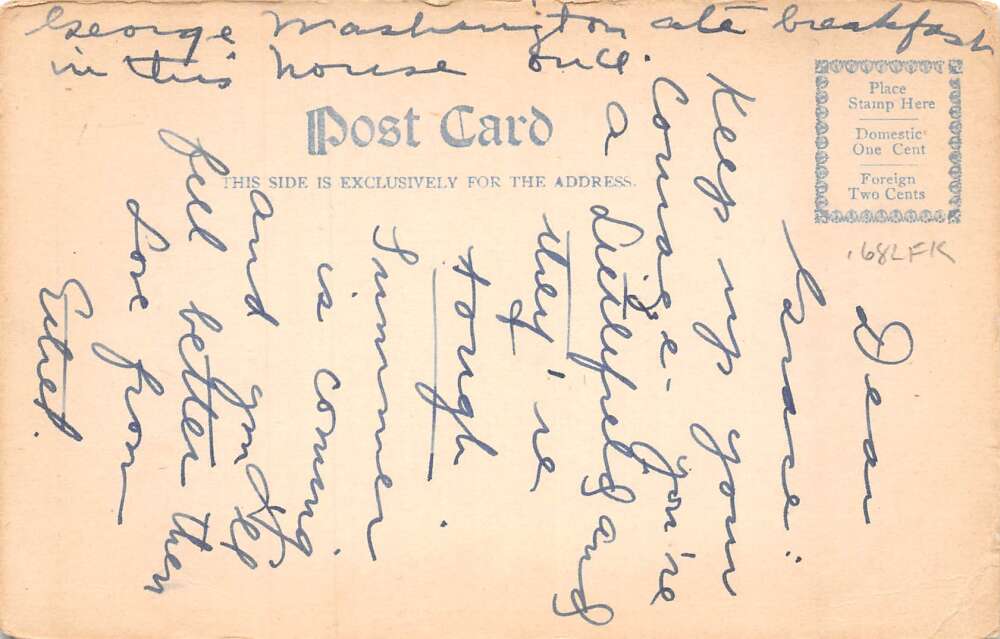 George Washington ate breakfast
in this house once.
Post Card
THIS SIDE IS EXCLUSIVELY FOR THE ADDRESS.
Place
Stamp Here
Domestic
One Cent
Foreign
Two Cents
.68LFK
Dear
Grace"
Keep up your
Courage - you're
a Littlefield and
they're
tough.
Summer
is coming
and you'll
feel better then
Love from
Ethel.